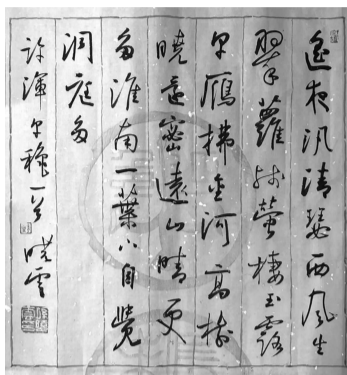 遥夜汎清瑟西风生
翠蘿残螢棲玉露
早雁拂金河高樹
曉還密遠山晴更
多淮南一葉下自覺
洞庭波
許渾早穐一首 曉雲